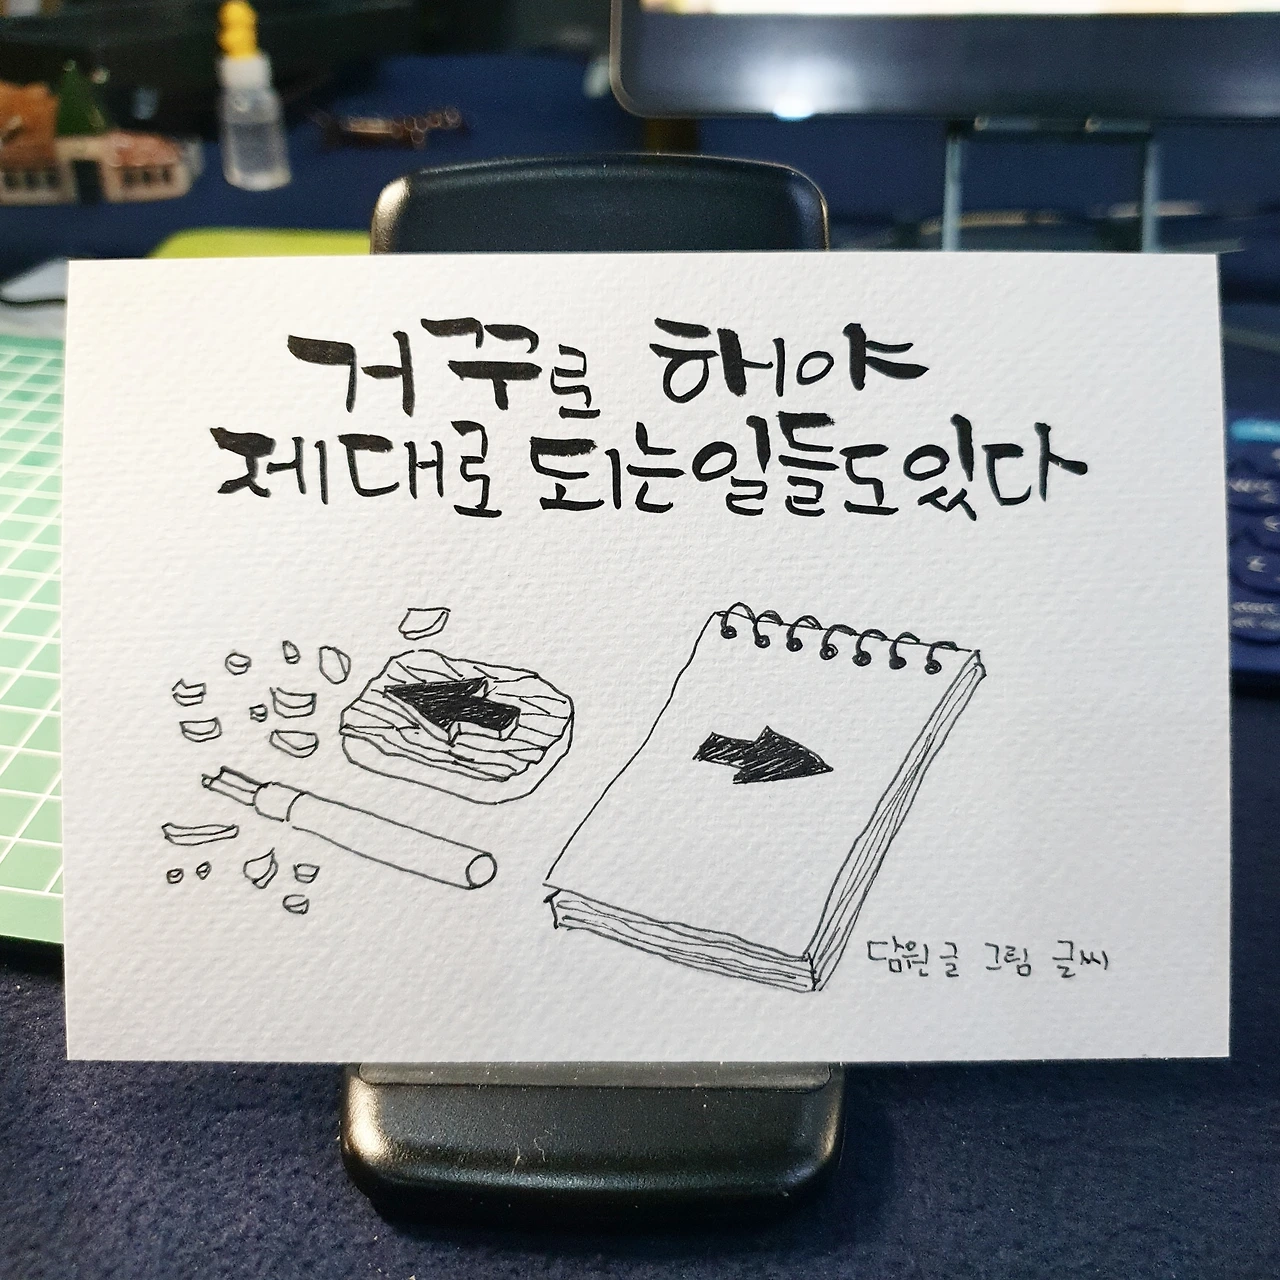 거꾸로 해야
제대로 되는일들도있다
담원 글 그림 글씨